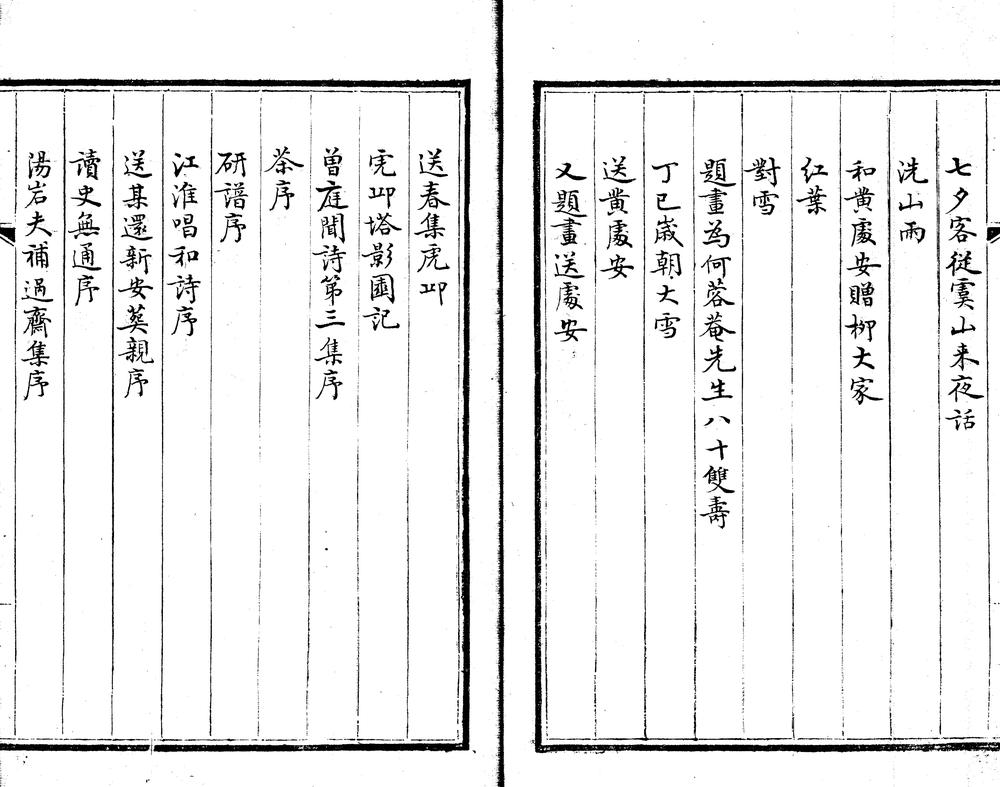 七夕客従虞山来夜話
洗山雨
和黄處安贈柳大家
紅葉
對雪
題畫為何蓉菴先生八十雙壽
丁巳歳朝大雪
送黄處安
又題畫送處安
送春集虎丘
虎丘塔影園記
曽庭聞詩第三集序
茶序
研譜序
江淮唱和詩序
送某還新安葬親序
讀史無通序
湯岩夫補過齋集序